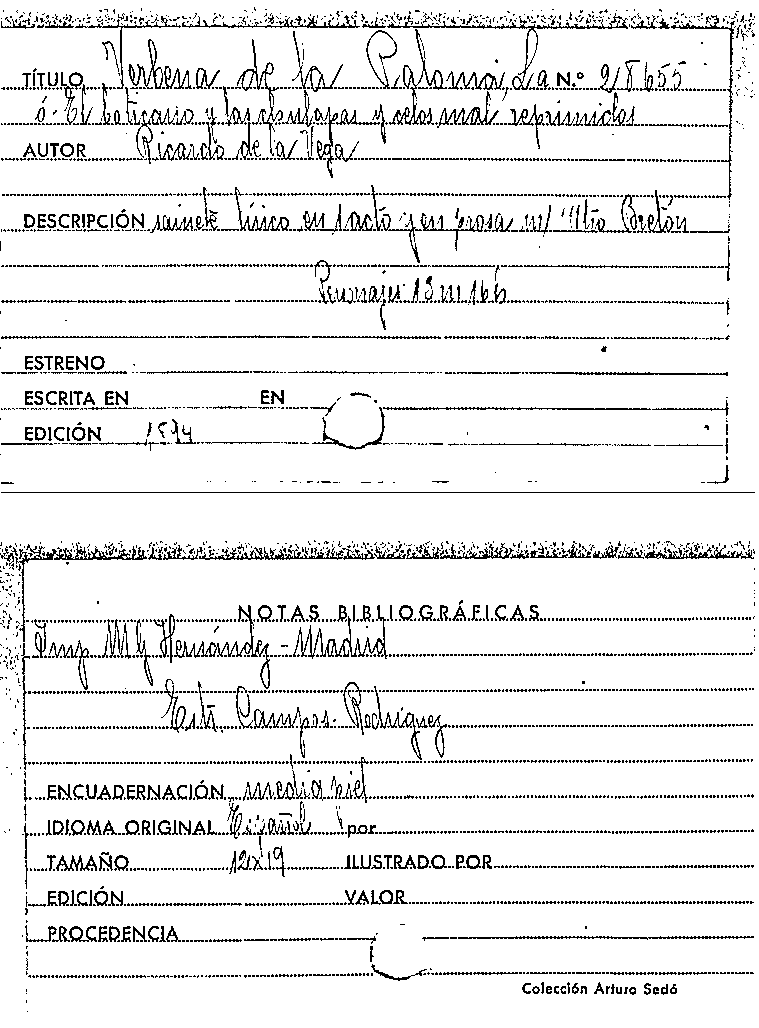 TÍTULO Verbena de la Paloma, La N.º 218655
ó- El boticario y las chulapas y celos mal reprimidos
AUTOR Ricardo de la Vega
DESCRIPCIÓN sainete lírico en 1 acto y en prosa m/ Mtro Bretón
Personajes 13 m 16 h
ESTRENO
ESCRITA EN EN
EDICIÓN 1894
NOTAS BIBLIOGRÁFICAS
Imp M G Hernández - Madrid
Estr. Campos - Rodríguez
ENCUADERNACIÓN media piel
IDIOMA ORIGINAL Español por
TAMAÑO 12x19 ILUSTRADO POR
EDICIÓN VALOR
PROCEDENCIA
Colección Arturo Sedó